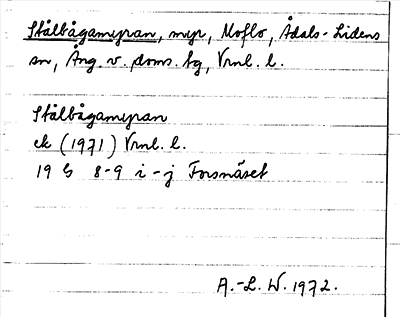 Stålbågamyran, myr, Moflo, Ådals-Lidens
sn, Ång. v. doms. hg, Vrnl. l.
Stålbågamyran
ek (1971) Vrnl. l.
19 G 8-9 i-j Forsnäset
A.-L. W. 1972.